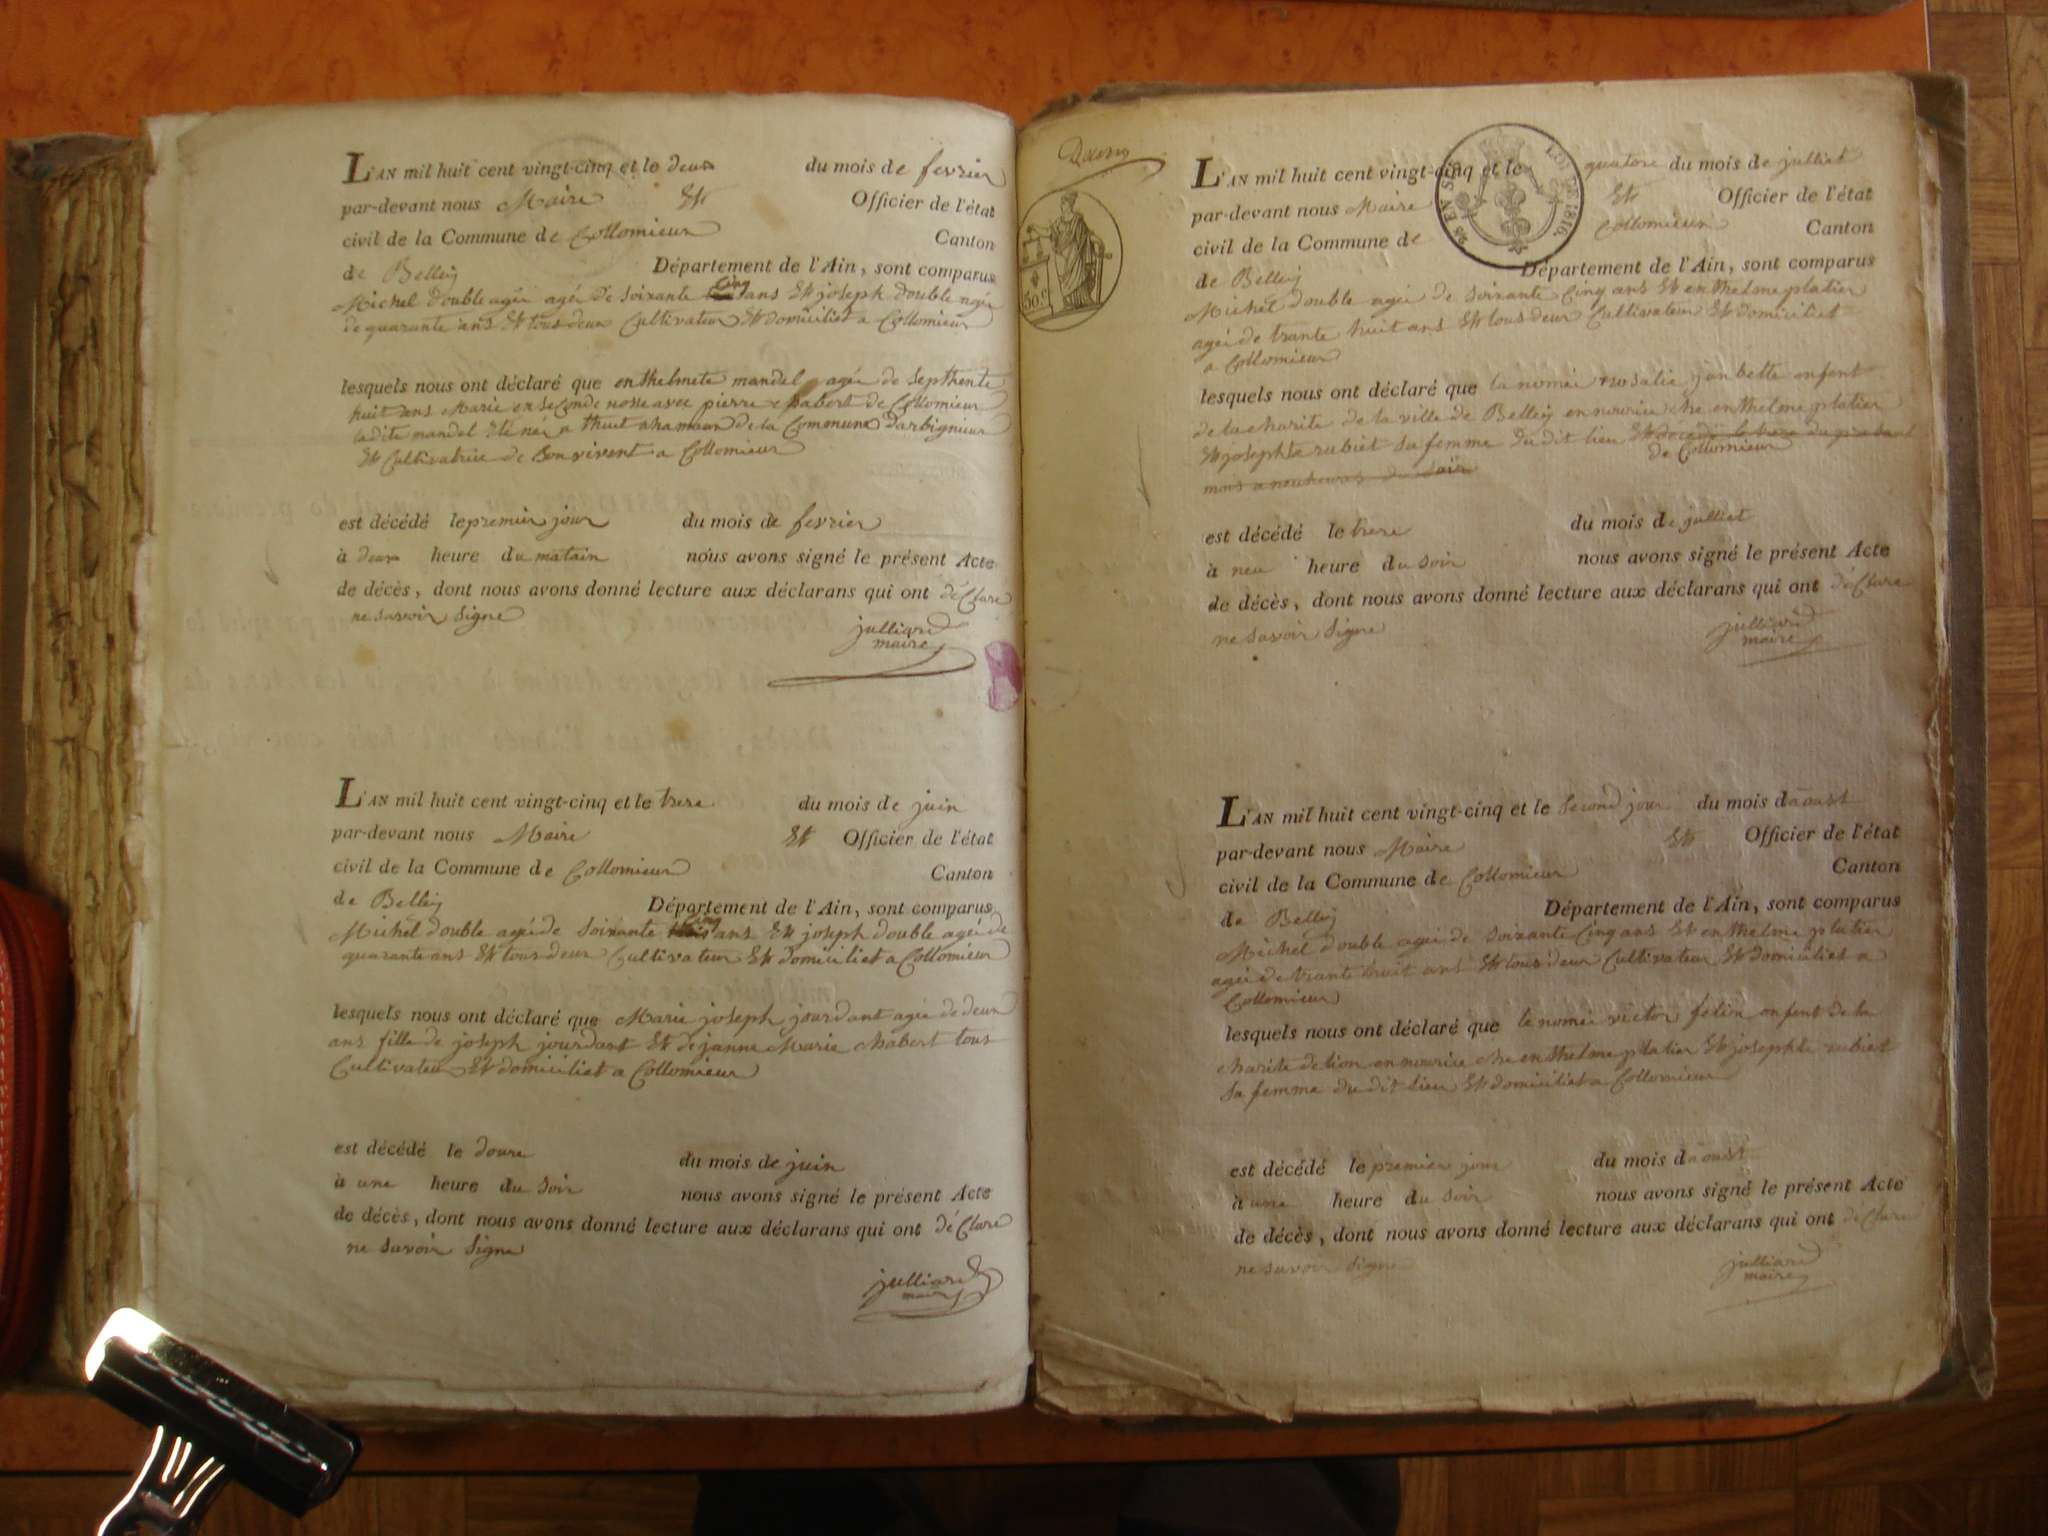 L'AN mil huit cent vingt-cinq et le deux du mois de fevrier
par-devant nous Maire Et Officier de l'état
civil de la Commune de Collomieux Canton
de Belleÿ Département de l'Ain, sont comparus
Michel double agée agée de soixante cinq ans Et joseph double agée
de quarante ans Et tous deux Cultivateur Et domiciliet a Collomieux
lesquels nous ont déclaré que enthelmete mandel agée de septhente
huit ans Marie en seConde nosse avec pierre chabert de Collomieux
ladite mandel Eté nee a thuet ahameau de la Commune Darbignieux
Et Cultivatrice de Son vivent a Collomieux
est décédé le premier jour du mois de fevrier
à deux heure du matain nous avons signé le présent Acte
de décès, dont nous avons donné lecture aux déclarans qui ont déClare
ne savoir signe
julliard
maire
L'AN mil huit cent vingt-cinq et le treze du mois de juin
par-devant nous Maire Et Officier de l'état
civil de la Commune de Collomieux Canton
de Belleÿ Département de l'Ain, sont comparus
Michel double agée de soixante cinq ans Et joseph double agée de
quarante ans Et tous deux Cultivateur Et domiciliet a Collomieux
lesquels nous ont déclaré que Marie joseph jourdant agée de deux
ans fille de joseph jourdant Et de janne Marie chabert tous
Cultivateur Et domiciliet a Collomieux
est décédé le douze du mois de juin
à une heure du soir nous avons signé le présent Acte
de décès, dont nous avons donné lecture aux déclarans qui ont déClare
ne savoir signe
julliard
maire
50 c.
LOI DE 1816.
L'AN mil huit cent vingt-cinq et le quatorze du mois de julliet
par-devant nous Maire Et Officier de l'état
civil de la Commune de Collomieux Canton
de Belleÿ Département de l'Ain, sont comparus
Michel double agée de soixante Cinq ans Et enthelme platier
agée de trante huit ans Et tous deux Cultivateur Et domiciliet
a Collomieux
lesquels nous ont déclaré que la nomée rosalie janbette enfent
de la charite de la ville de Belleÿ en nourice che enthelme platier
Et josephte rubiet sa femme du dit lieu Et décédé le treze du présent
de Collomieux
mois a neuheures du soir
est décédé le treze du mois de julliet
à neu heure du soir nous avons signé le présent Acte
de décès, dont nous avons donné lecture aux déclarans qui ont déClare
ne savoir signe
julliard
maire
L'AN mil huit cent vingt-cinq et le second jour du mois daoust
par-devant nous Maire Et Officier de l'état
civil de la Commune de Collomieux Canton
de Belleÿ Département de l'Ain, sont comparus
Michel double agée de soixante Cinq ans Et enthelme platier
agée de trante huit ans Et tous deux Cultivateur Et domiciliet a
Collomieux
lesquels nous ont déclaré que le nomée victor felion enfent de la
charite de lion en nourice che enthelme platier Et josephte rubiet
sa femme du dit lieu Et domiciliet a Collomieux
est décédé le premier jour du mois daoust
à une heure du soir nous avons signé le présent Acte
de décès, dont nous avons donné lecture aux déclarans qui ont déClare
ne savoir signe
julliard
maire